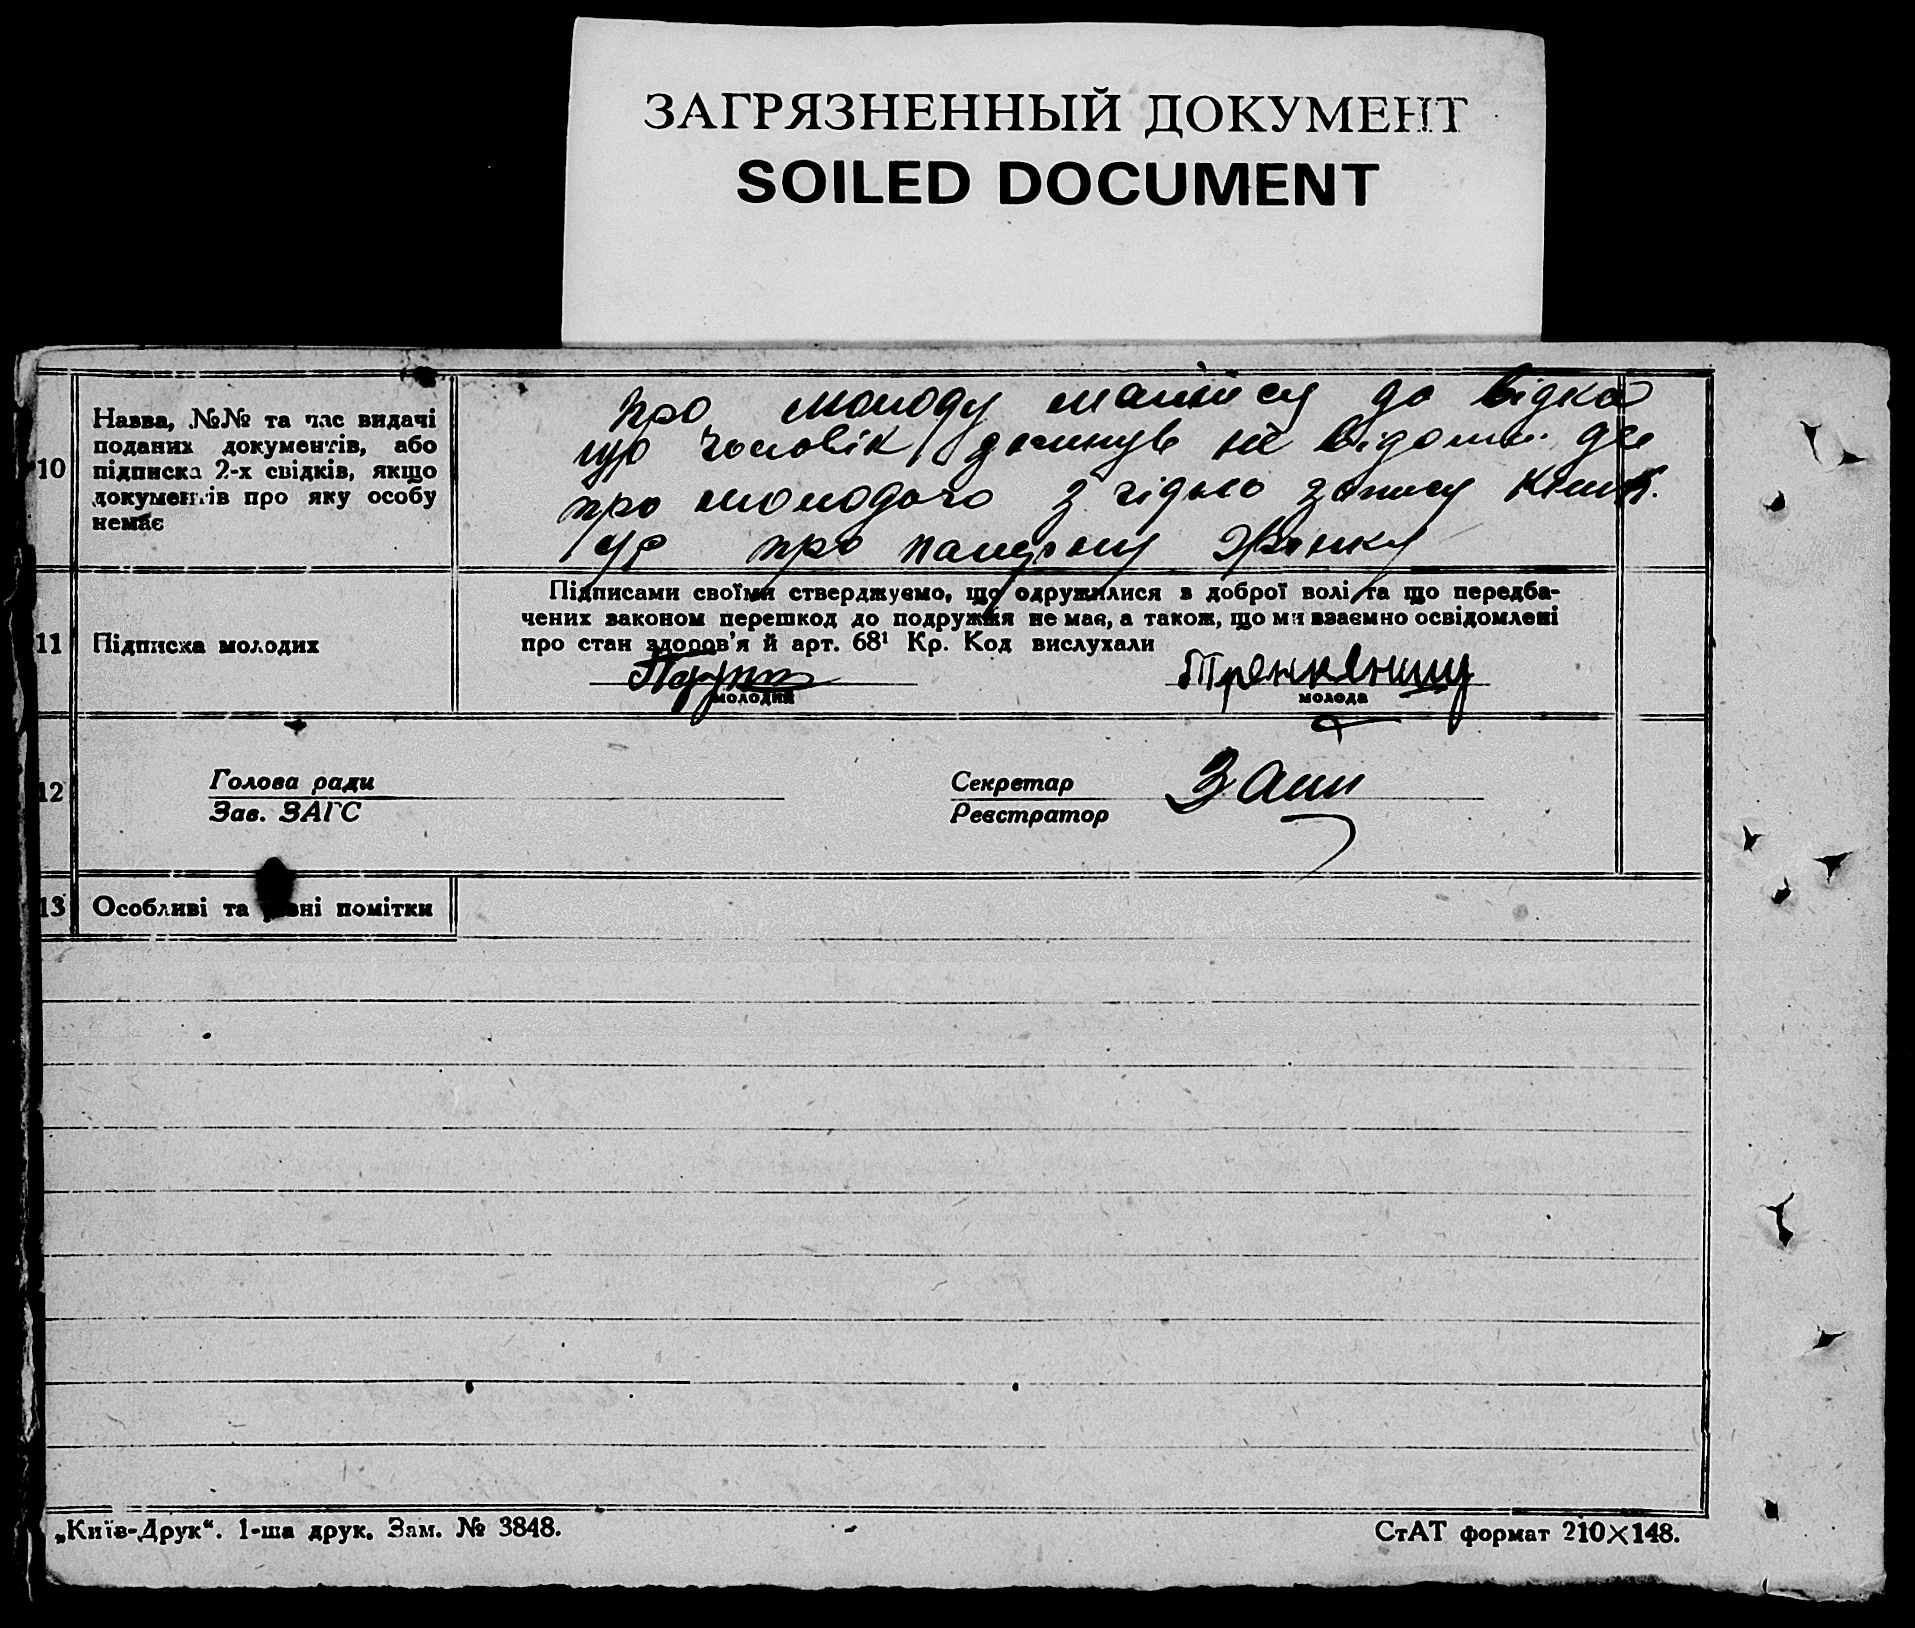 ЗАГРЯЗНЕННЫЙ ДОКУМЕНТ
SOILED DOCUMENT
10
Назва, №№ та час видачі
поданих документів, або
підписка 2-х свідків, якщо
документів про яку особу
немає
про молоду до
що чоловік не відом. де
про молодого з гідно запису
про жінку
11
Підписка молодих
Підписами своїми стверджуємо, що одружилися з доброї волі, та що передба-
чених законом перешкод до подружжя не має, а також, що ми взаємно освідомлені
про стан здоров'я й арт. 68¹ Кр. Код вислухали
молодий
молода
12
Голова ради
Зав. ЗАГС
Секретар
Реєстратор
13
Особливі та ні помітки
„Київ-Друк“. 1-ша друк. Зам. № 3848.
СтАТ формат 210×148.